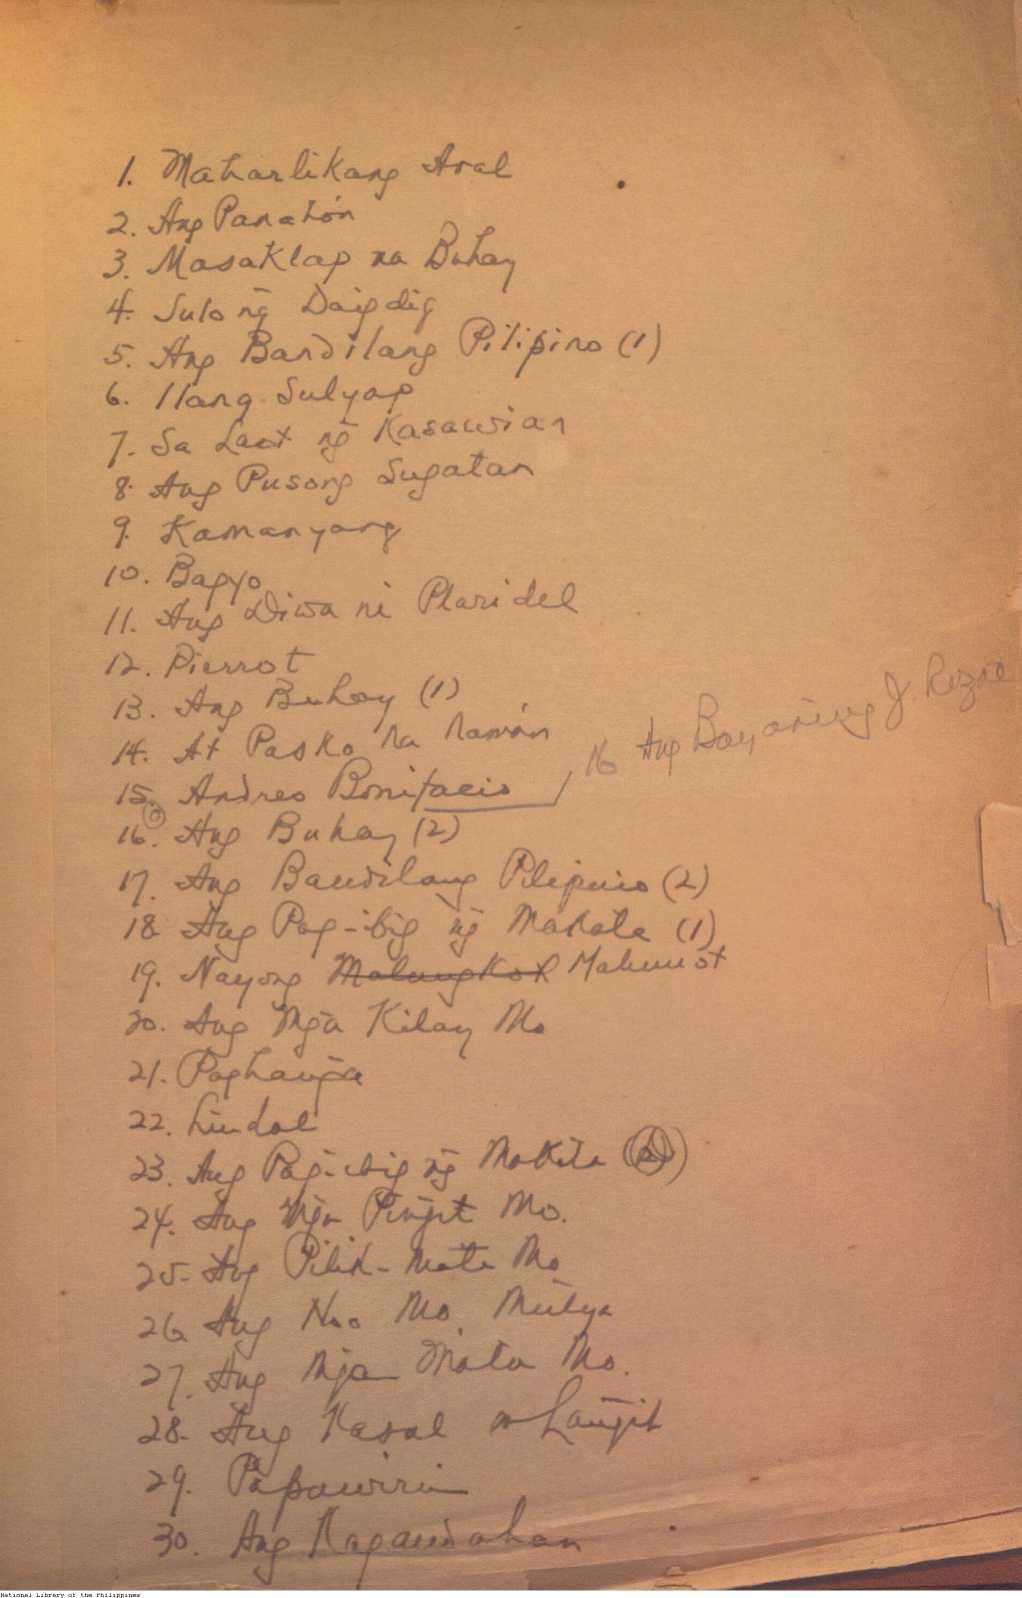 1. Maharlikang Aral
2. Ang Panahón
3. Masaklap na Buhay
4. Sulo ng̃ Daigdig
5. Ang Bandilang Pilipino (1)
6. Ilang Sulyap
7. Sa Laot ng̃ Kasawian
8. Ang Pusong Sugatan
9. Kamanyang
10. Bagyo
11. Ang Diwa ni Plaridel
12. Pierrot
13. Ang Buhay (1)
14. At Pasko na namán
15. Andres Bonifacio / 16 Ang Bayaning J. Rizal
16. Ang Buhay (2)
17. Ang Bandilang Pilipino (2)
18. Ang Pag-ibig ng̃ Makata (1)
19. Nayong Malungkot Malumot
20. Ang Mg̃a Kilay Mo
21. Paghang̃a
22. Lindol
23. Ang Pag-ibig ng̃ Makata (2)
24. Ang Mg̃a Ping̃it Mo.
25. Ang Pilik-mata Mo
26. Ang Noo Mo, Mutya
27. Ang Mga Mata Mo.
28. Ang Kasal sa Lang̃it
29. Papawirin
30. Ang Kagandahan
National Library of the Philippines